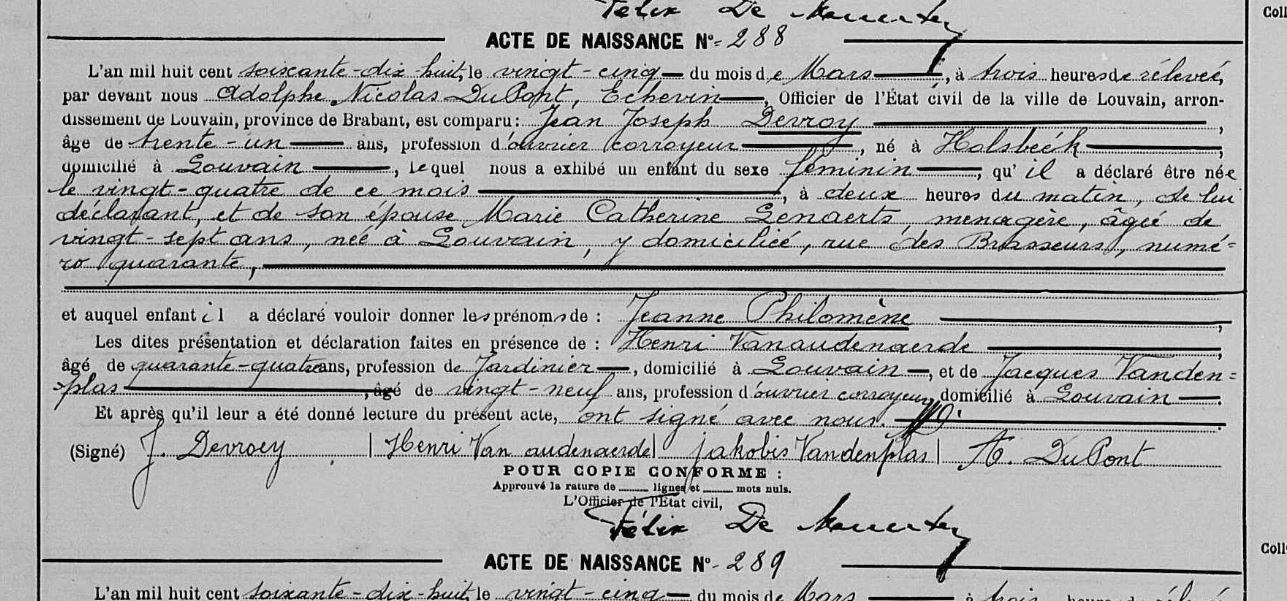 Félix De
Coll
ACTE DE NAISSANCE No- 288
L'an mil huit cent soixante-dix huit, le vingt-cinq du mois de Mars, à trois heures de relevée,
par devant nous Adolphe Nicolas DuPont, Echevin, Officier de l'État civil de la ville de Louvain, arron-
dissement de Louvain, province de Brabant, est comparu: Jean Joseph Devroy,
âge de trente-un ans, profession d'ouvrier corroyeur, né à Holsbeéck,
domicilié à Louvain, lequel nous a exhibé un enfant du sexe féminin, qu'il a déclaré être née
le vingt-quatre de ce mois, à deux heures du matin, de lui
déclarant, et de son épouse Marie Catherine Lenaerts, menagère, âgée de
vingt-sept ans, née à Louvain, y domiciliée, rue des Brasseurs, numé-
ro quarante,
et auquel enfant il a déclaré vouloir donner les prénoms de : Jeanne Philomène,
Les dites présentation et déclaration faites en présence de : Henri Vanaudenaerde,
âgé de quarante-quatre ans, profession de Jardinier, domicilié à Louvain, et de Jacques Vanden=
plas, âgé de vingt-neuf ans, profession d'ouvrier corroyeur, domicilié à Louvain.
Et après qu'il leur a été donné lecture du présent acte, ont signé avec nous.
(Signé) J. Devroey | Henri Van audenaerde | Jakobis Vandenplas | A. DuPont
POUR COPIE CONFORME :
Approuvé la rature de lignes et mots nuls.
L'Officier de l'État civil,
Félix De
ACTE DE NAISSANCE No- 289
Coll
L'an mil huit cent soixante-dix-huit, le vingt-cinq du mois de Mars à trois heures de relevé